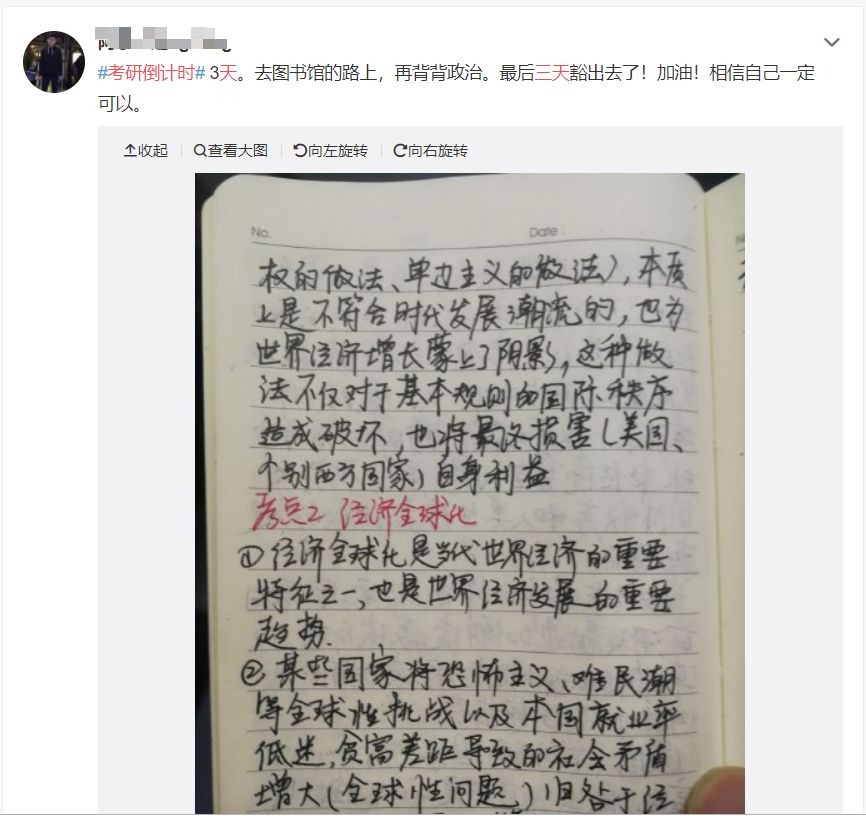 #考研倒计时# 3天。去图书馆的路上，再背背政治。最后三天豁出去了！加油！相信自己一定
可以。
收起 查看大图 向左旋转 向右旋转
No. Date:
权的做法、单边主义的做法），本质
上是不符合时代发展潮流的，也为
世界经济增长蒙上了阴影，这种做
法不仅对于基本规则的国际秩序
造成破坏，也将最终损害（美国、
个别西方国家）自身利益
考点2 经济全球化
①经济全球化是当代世界经济的重要
特征之一，也是世界经济发展的重要
趋势.
②某些国家将恐怖主义、难民潮
等全球性挑战以及本国就业率
低迷，贫富差距导致的社会矛盾
增大（全球性问题）归咎于经